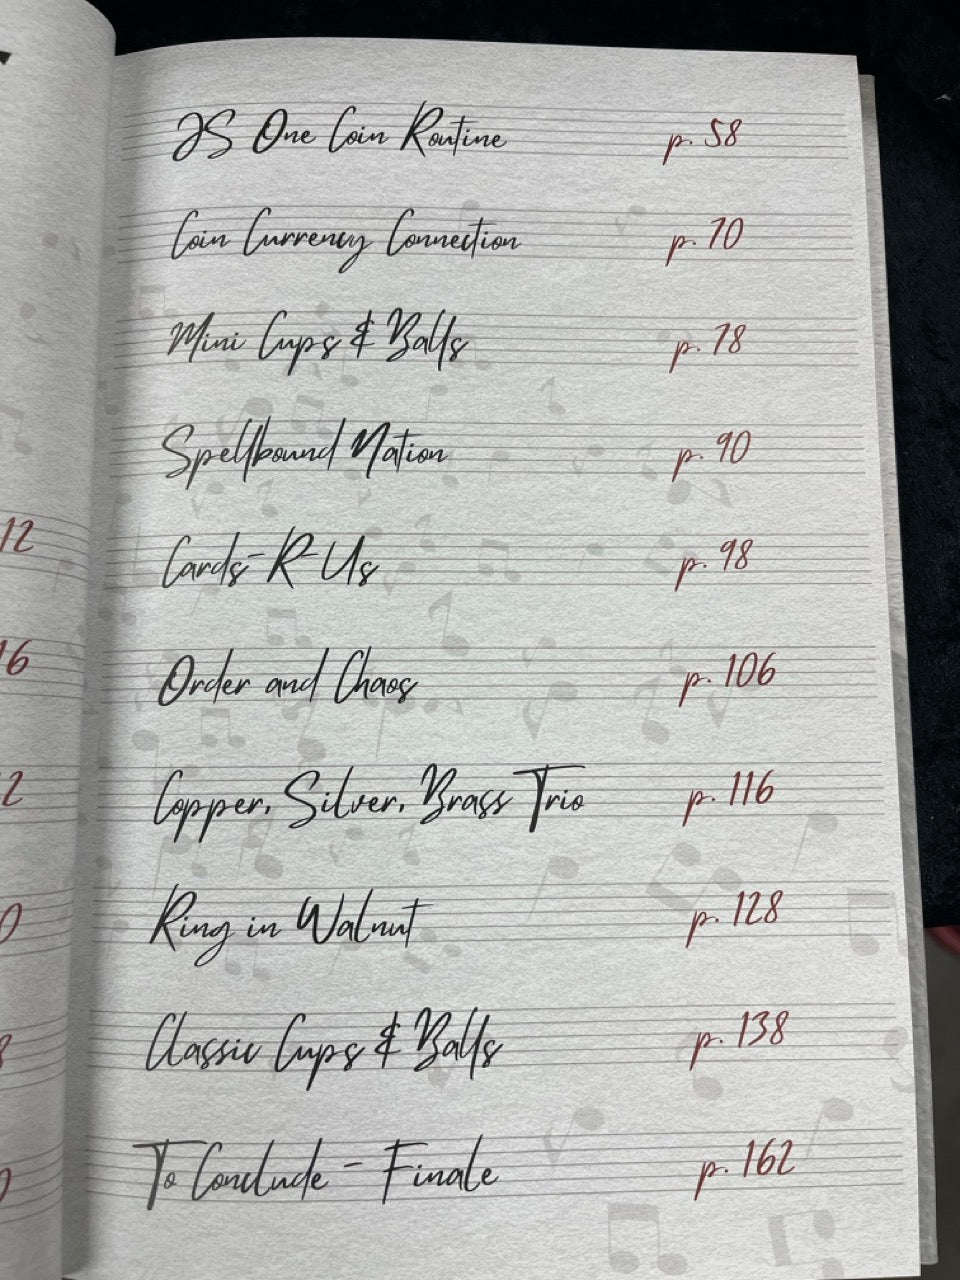 JS One Coin Routine p. 58
Coin Currency Connection p. 70
Mini Cups & Balls p. 78
Spellbound Nation p. 90
Cards-R-Us p. 98
Order and Chaos p. 106
Copper, Silver, Brass Trio p. 116
Ring in Walnut p. 128
Classic Cups & Balls p. 138
To Conclude - Finale p. 162
12
16